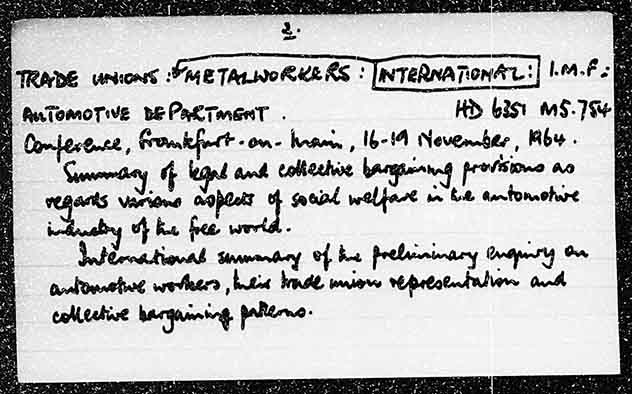 2.
TRADE UNIONS: METALWORKERS: INTERNATIONAL: I.M.F:
AUTOMOTIVE DEPARTMENT. HD 6351 M5.7S4
Conference, Frankfurt-on-Main, 16-19 November, 1964.
Summary of legal and collective bargaining provisions as
regards various aspects of social welfare in the automotive
industry of the free world.
International summary of the preliminary enquiry on
automotive workers, their trade union representation and
collective bargaining patterns.